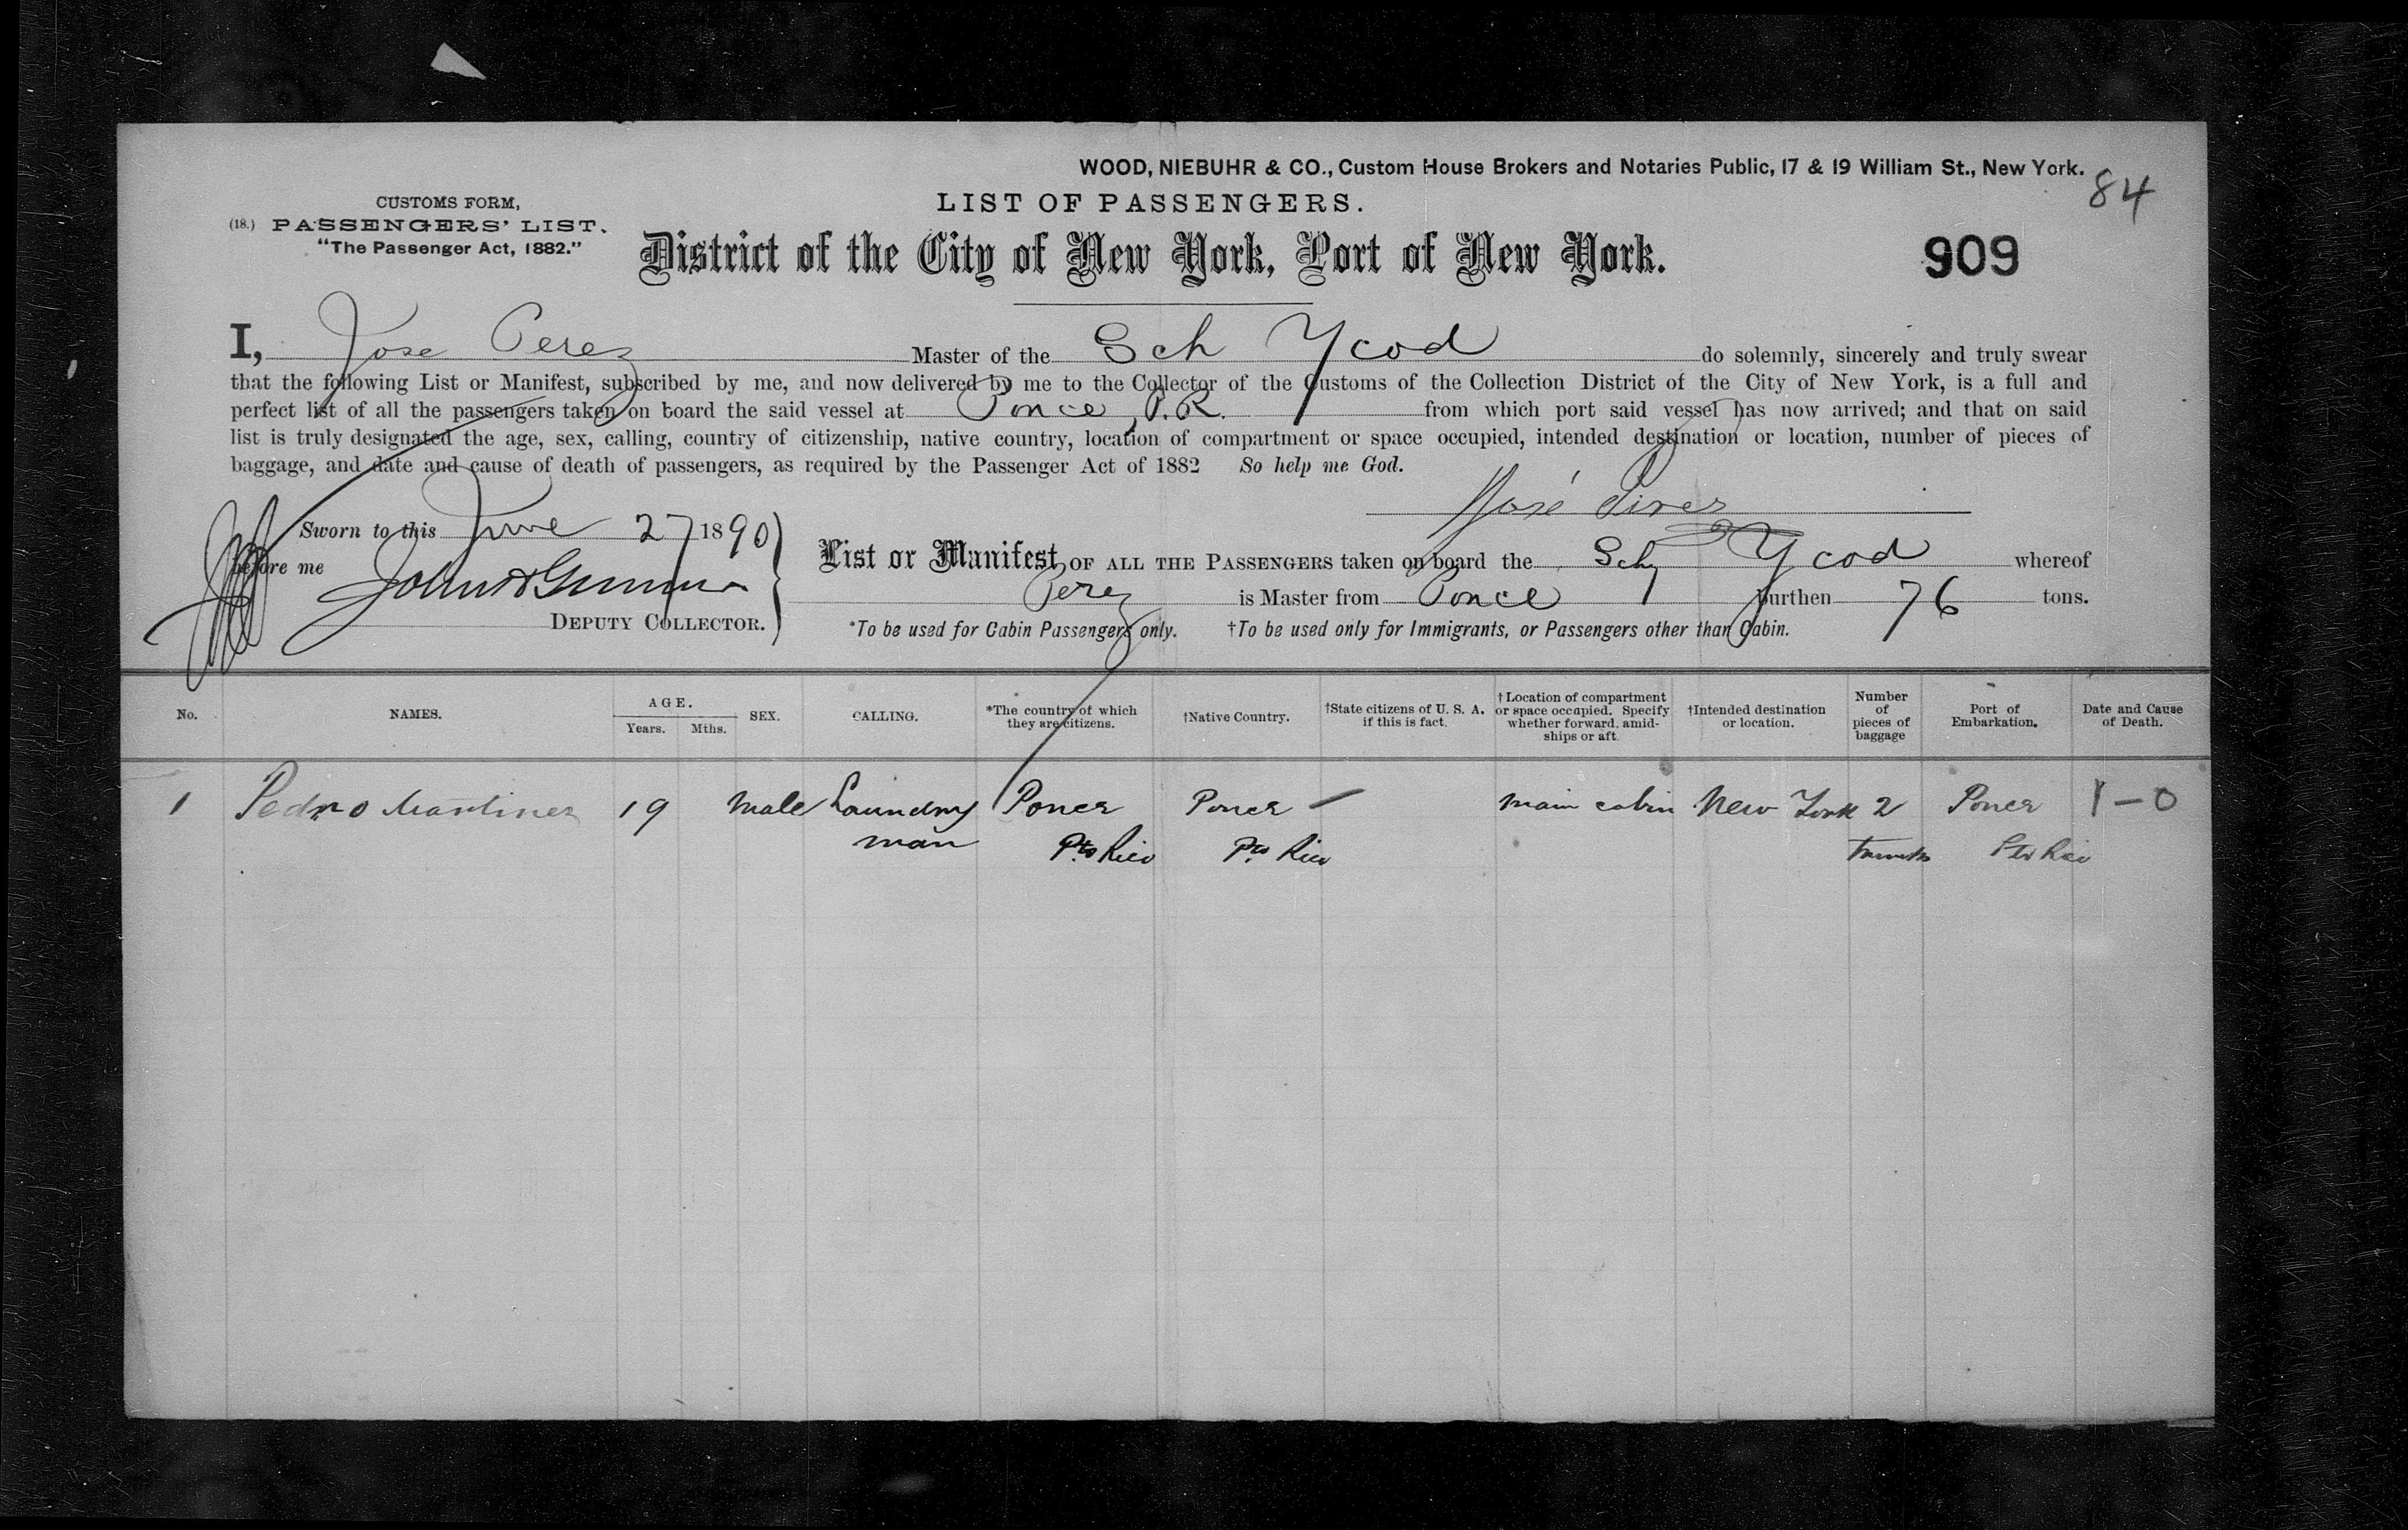 WOOD, NIEBUHR & CO., Custom House Brokers and Notaries Public, 17 & 19 William St., New York.
84
CUSTOMS FORM,
(18.) PASSENGERS' LIST.
"The Passenger Act, 1882."
LIST OF PASSENGERS.
District of the City of New York, Port of New York.
909
I, Jose Perez Master of the Sch Ycod do solemnly, sincerely and truly swear
that the following List or Manifest, subscribed by me, and now delivered by me to the Collector of the Customs of the Collection District of the City of New York, is a full and
perfect list of all the passengers taken on board the said vessel at Ponce, P.R. from which port said vessel has now arrived; and that on said
list is truly designated the age, sex, calling, country of citizenship, native country, location of compartment or space occupied, intended destination or location, number of pieces of
baggage, and date and cause of death of passengers, as required by the Passenger Act of 1882 So help me God.
José
Sworn to this June 27 1890
before me
DEPUTY COLLECTOR.
List or Manifest OF ALL THE PASSENGERS taken on board the Sch Ycod whereof
Perez is Master from Ponce burthen 76 tons.
*To be used for Cabin Passengers only. †To be used only for Immigrants, or Passengers other than Cabin.
No. NAMES. AGE. Years. Mths. SEX. CALLING. *The country of which they are citizens. †Native Country. †State citizens of U. S. A. if this is fact. †Location of compartment or space occupied. Specify whether forward, amid-ships or aft. †Intended destination or location. Number of pieces of baggage Port of Embarkation. Date and Cause of Death.
1 Pedro Martinez 19 Male Laundry Ponce Ponce — main cabin New York 2 Ponce 1-0
man Pto Rico Pto Rico trunks Pto Rico